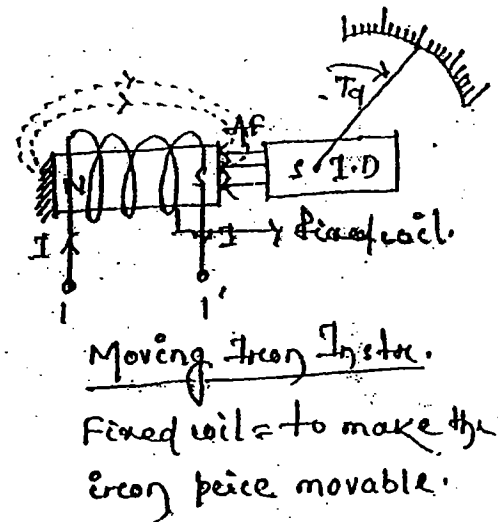 Tq
Af
N
S
S I.D
I
I
fixed coil.
1
1'
Moving Iron Instr.
Fixed coil = to make the
iron peice movable.